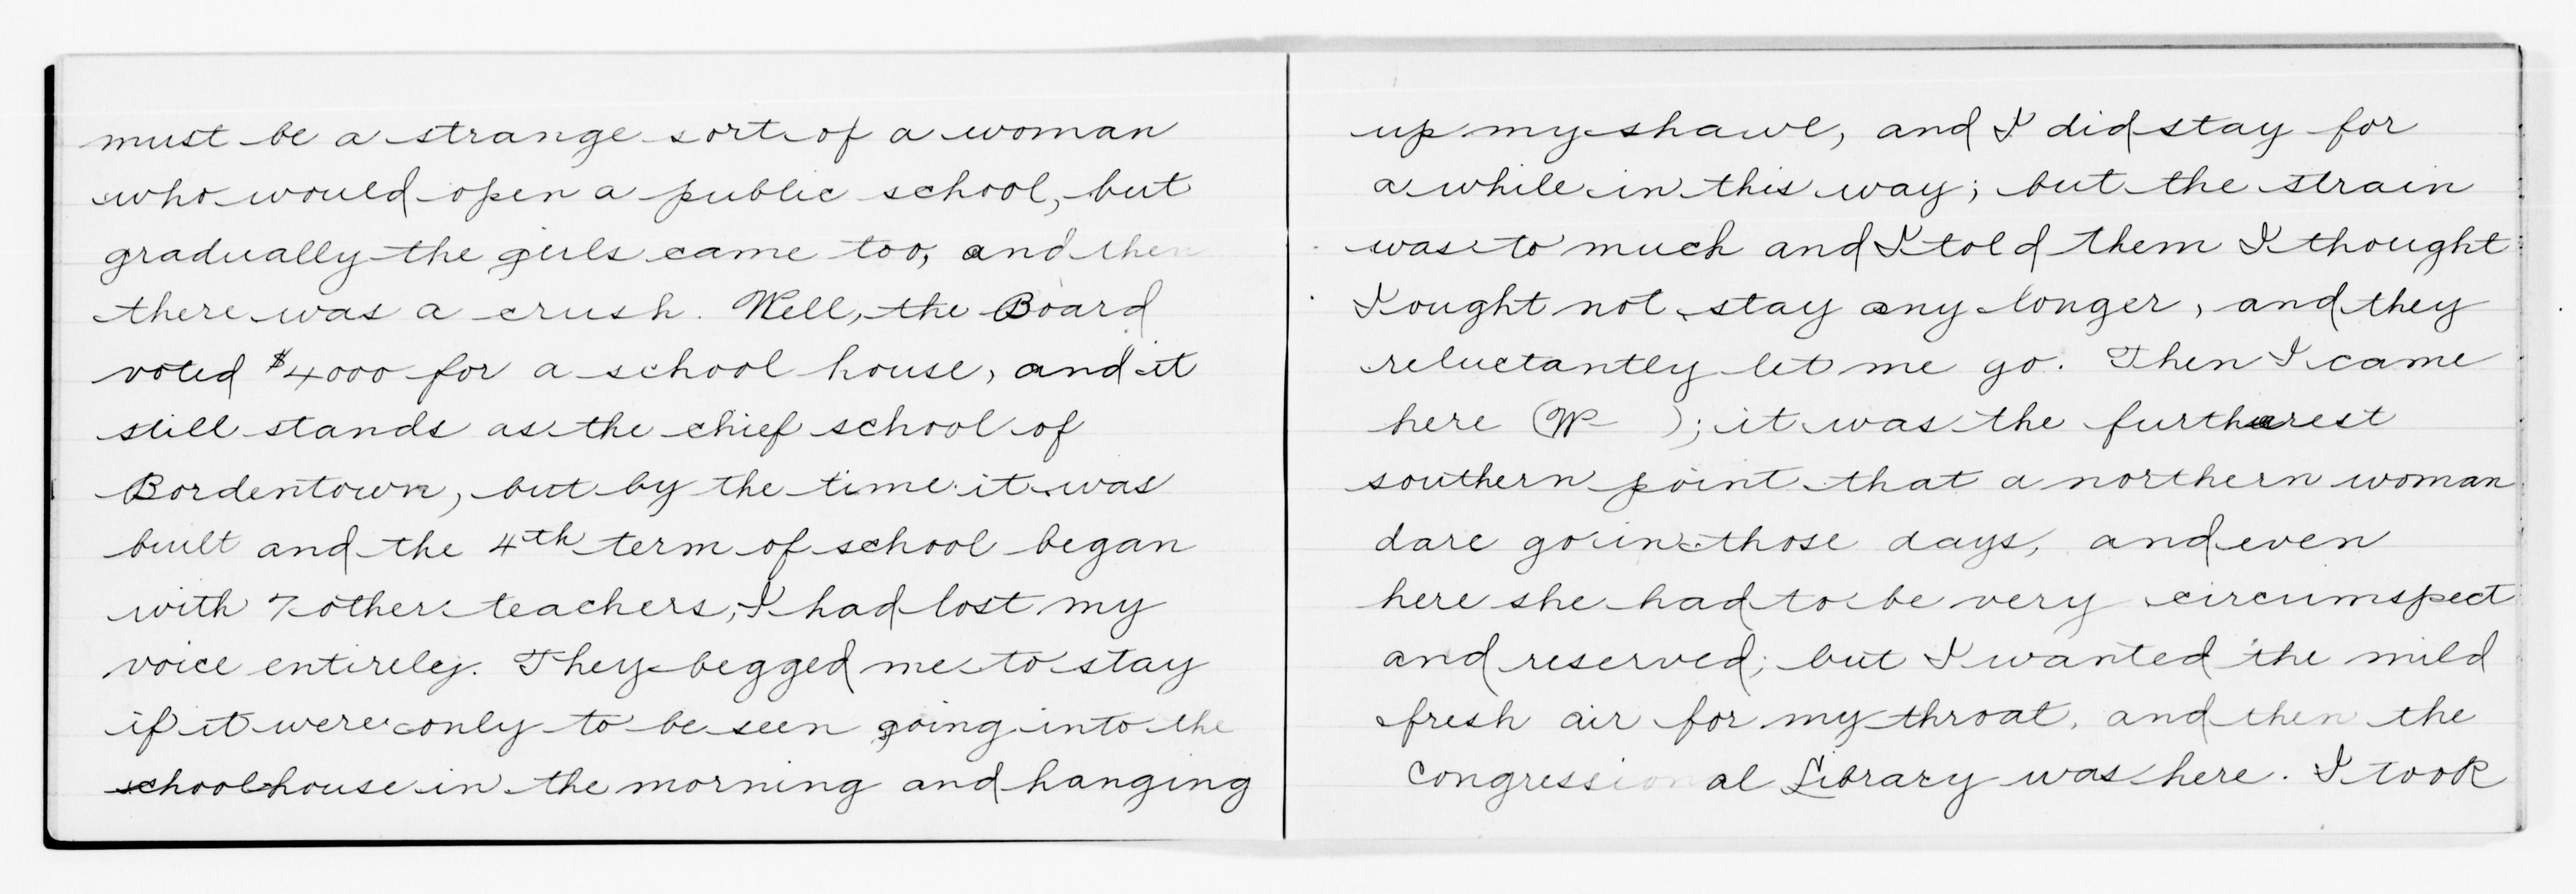 must be a strange sort of a woman
who would open a public school, but
gradually the girls came too, and then
there was a crush. Well, the Board
voted $4000 for a school house, and it
still stands as the chief school of
Bordentown, but by the time it was
built and the 4th term of school began
with 7 other teachers, I had lost my
voice entirely. They begged me to stay
if it were only to be seen going into the
schoolhouse in the morning and hanging
up my shawl, and I did stay for
a while in this way; but the strain
was to much and I told them I thought
I ought not stay any longer, and they
reluctantly let me go. Then I came
here (W ); it was the furtherest
southern point that a northern woman
dare go in those days, and even
here she had to be very circumspect
and reserved; but I wanted the mild
fresh air for my throat, and then the
Congressional Library was here. I took